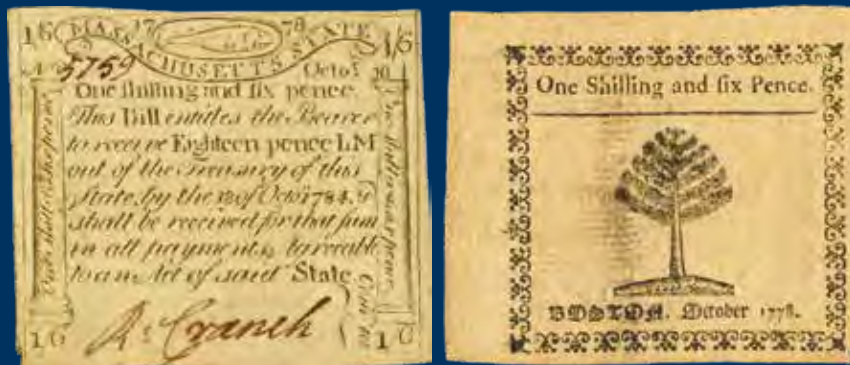 16 17 78 1/6
MASSACHUSETTS STATE
5759 Octor.
One ſhilling and ſix pence.
This Bill entitles the Bearer
to receive Eighteen pence LM
out of the Treasury of this
State, by the of Octo. 1784, &
ſhall be received for that ſum
in all payments, agreeable
to an Act of said State
R. Cranch
16
One Shilling and ſix Pence.
BOSTON, October 1778.